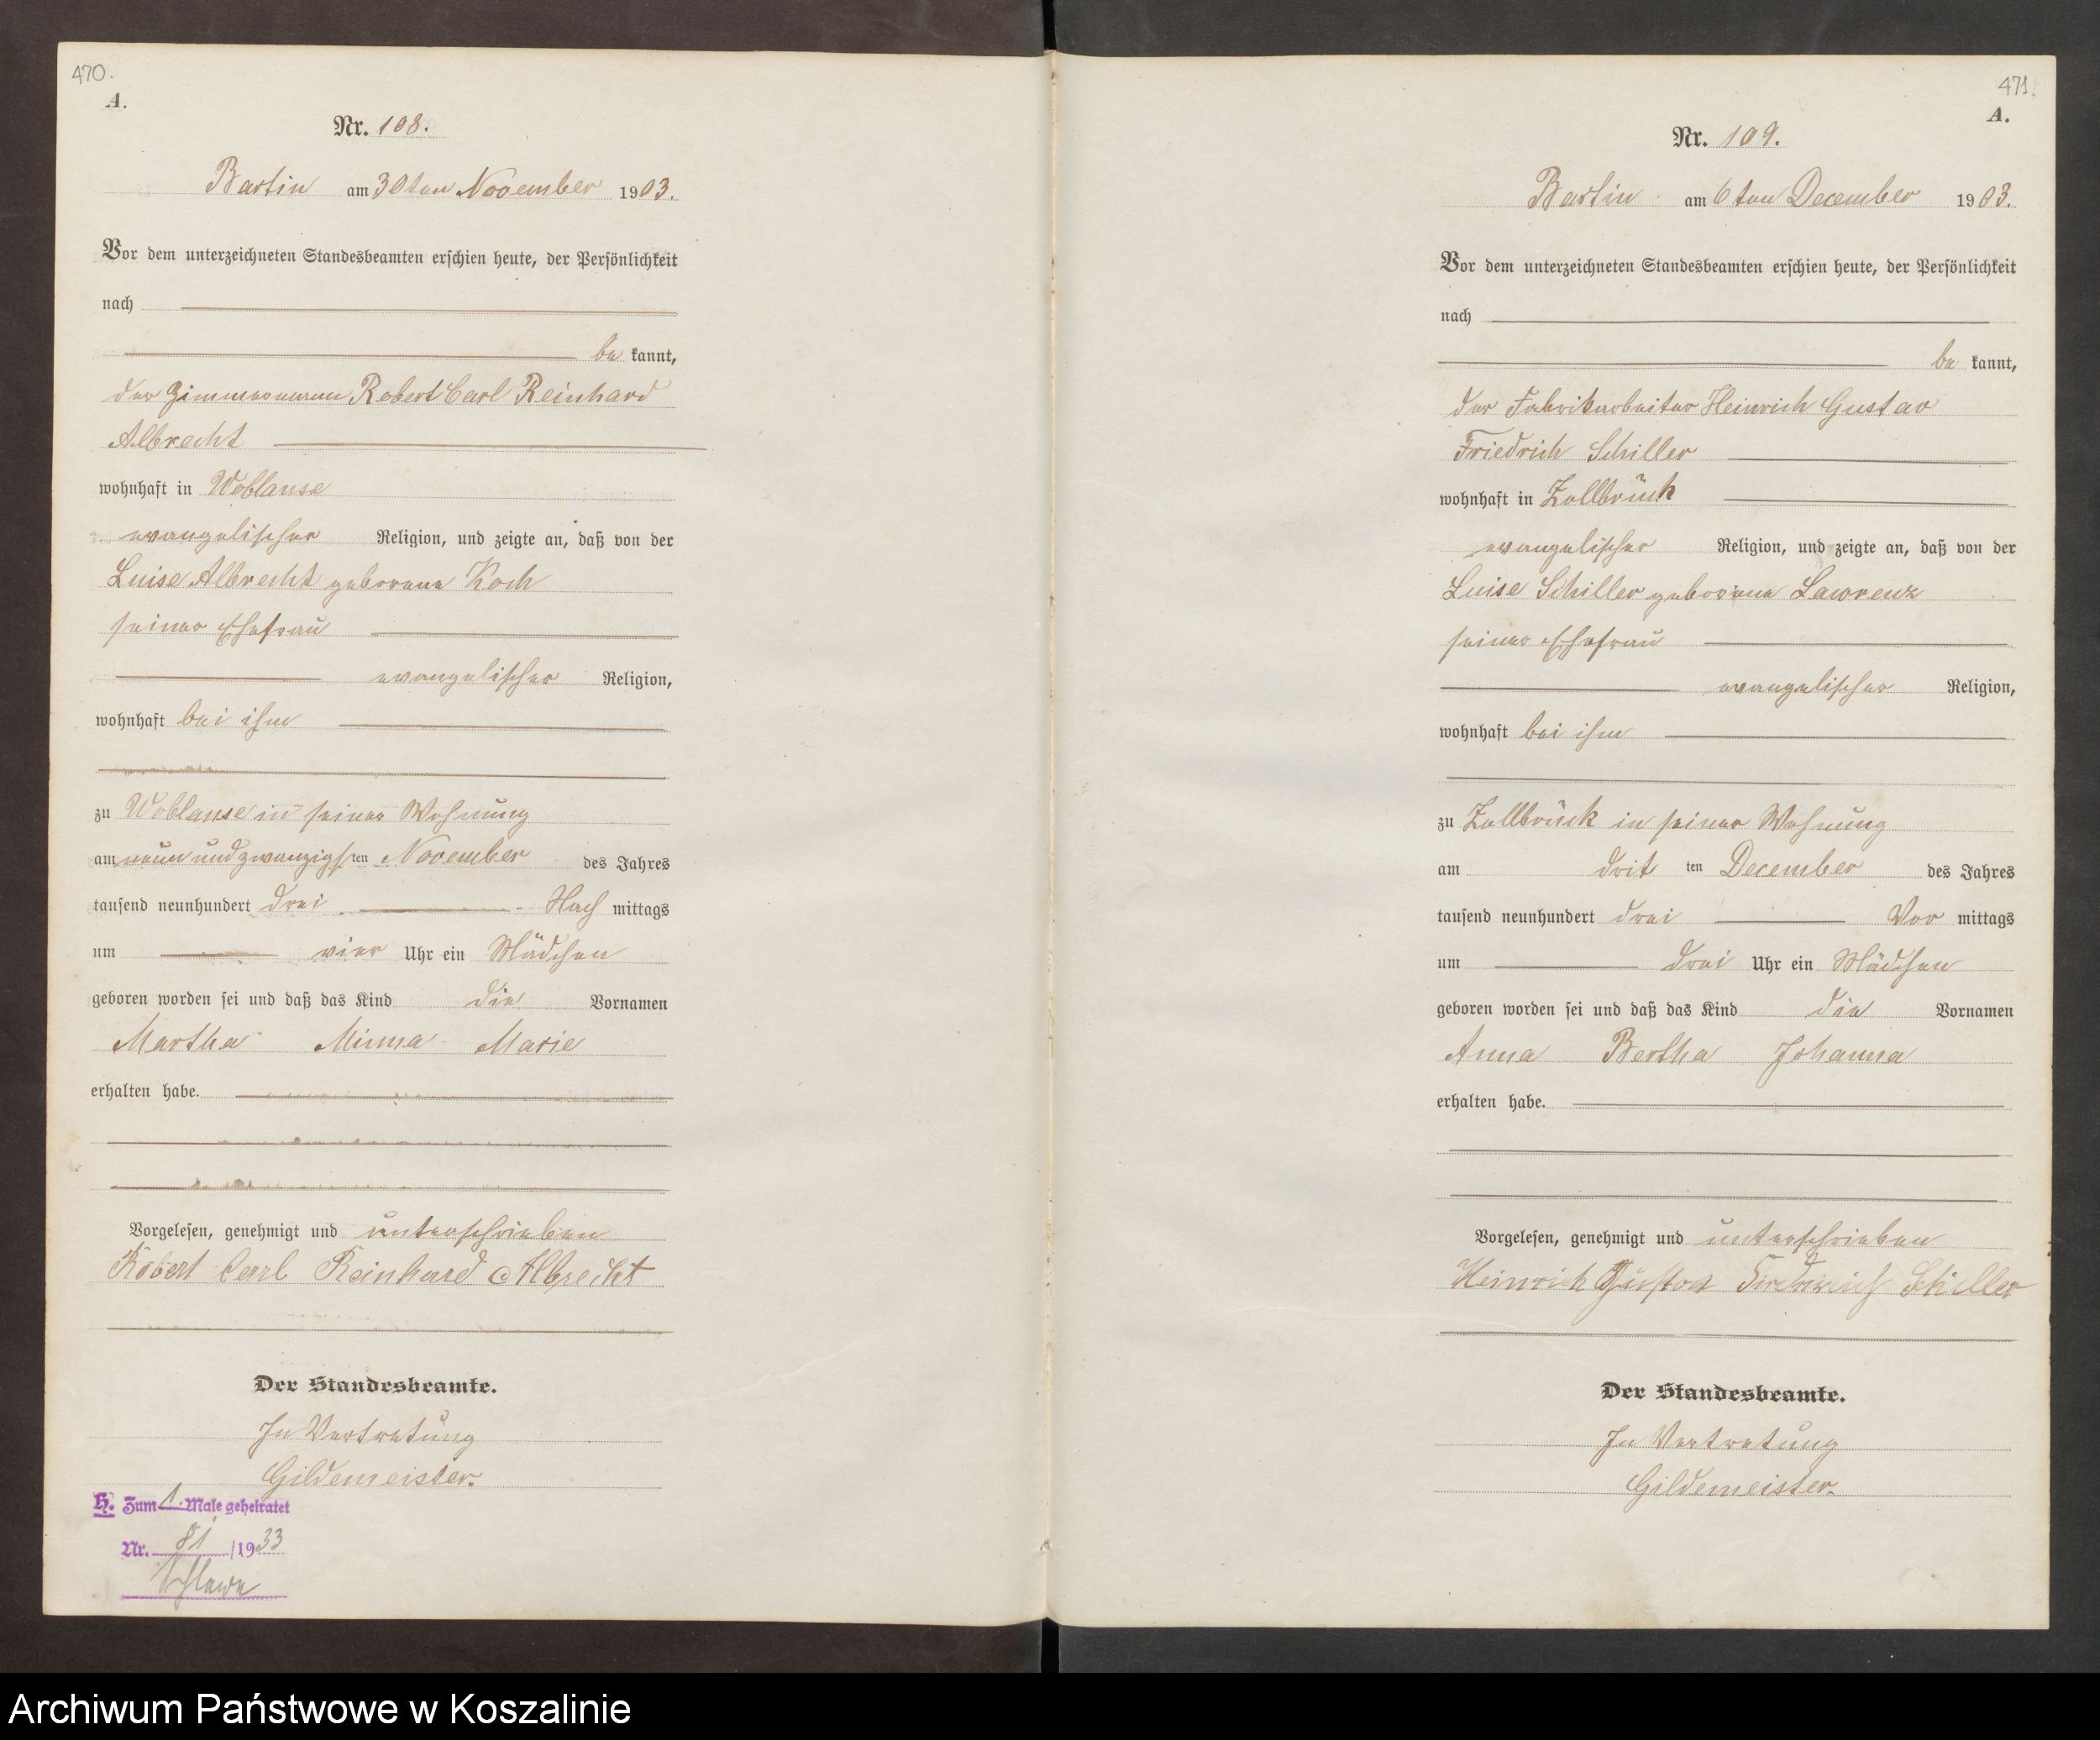 470.
A.
Nr. 108.
Bartin am 30ten November 1903.
Vor dem unterzeichneten Standesbeamten erschien heute, der Persönlichkeit
nach
be kannt,
der Zimmermann Robert Carl Reinhard
Albrecht
wohnhaft in Woblanse
evangelischer Religion, und zeigte an, daß von der
Luise Albrecht geborene Koch
seiner Ehefrau
evangelischer Religion,
wohnhaft bei ihm
zu Woblanse in seiner Wohnung
am neun und zwanzigsten November des Jahres
tausend neunhundert drei Nach mittags
um vier Uhr ein Mädchen
geboren worden sei und daß das Kind die Vornamen
Martha Minna Marie
erhalten habe.
Vorgelesen, genehmigt und unterschrieben
Robert Carl Reinhard Albrecht
Der Standesbeamte.
In Vertretung
Gildemeister.
H. Zum 1. Male geheiratet
Nr. 81 /1933
Schlawe
471.
A.
Nr. 109.
Bartin am 6ten December 1903.
Vor dem unterzeichneten Standesbeamten erschien heute, der Persönlichkeit
nach
be kannt,
der Fabrikarbeiter Heinrich Gustav
Friedrich Schiller
wohnhaft in Zollbrück
evangelischer Religion, und zeigte an, daß von der
Luise Schiller geborene Lawrenz
seiner Ehefrau
evangelischer Religion,
wohnhaft bei ihm
zu Zollbrück in seiner Wohnung
am dritten December des Jahres
tausend neunhundert drei Vor mittags
um drei Uhr ein Mädchen
geboren worden sei und daß das Kind die Vornamen
Anna Bertha Johanna
erhalten habe.
Vorgelesen, genehmigt und unterschrieben
Heinrich Gustav Friedrich Schiller
Der Standesbeamte.
In Vertretung
Gildemeister.
Archiwum Państwowe w Koszalinie